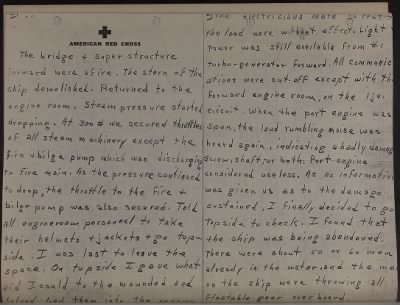 AMERICAN RED CROSS
The bridge & super structure
forward were afire. The stern of the
ship demolished. Returned to the
engine room. Steam pressure started
dropping. At 300# we secured throttles
of all steam machinery except the
fire & bilge pump which was discharging
to fire main. As the pressure continued
to drop, the throttle to the fire &
bilge pump was also secured. Told
all engineroom personnel to take
their helmets & jackets & go top-
side. I was last to leave the
space. On topside I gave what
aid I could to the wounded and
helped
them into the
electricians mate to
the load were without effect. Light
power was still available from #1
turbo-generator forward. All communic
ations were cut off except with the
forward engine room, on the
circuit. When the port engine was
spun, the loud rumbling noise was
heard again, indicating a badly damag
screw, shaft, or both. Port engine
considered useless. As no information
was given us as to the damage
sustained, I finally decided to go
topside to check. I found that
the ship was being abandoned.
There were about 50 or 60 men
already in the water, and the men
on the ship were throwing all
floatable gear over board.